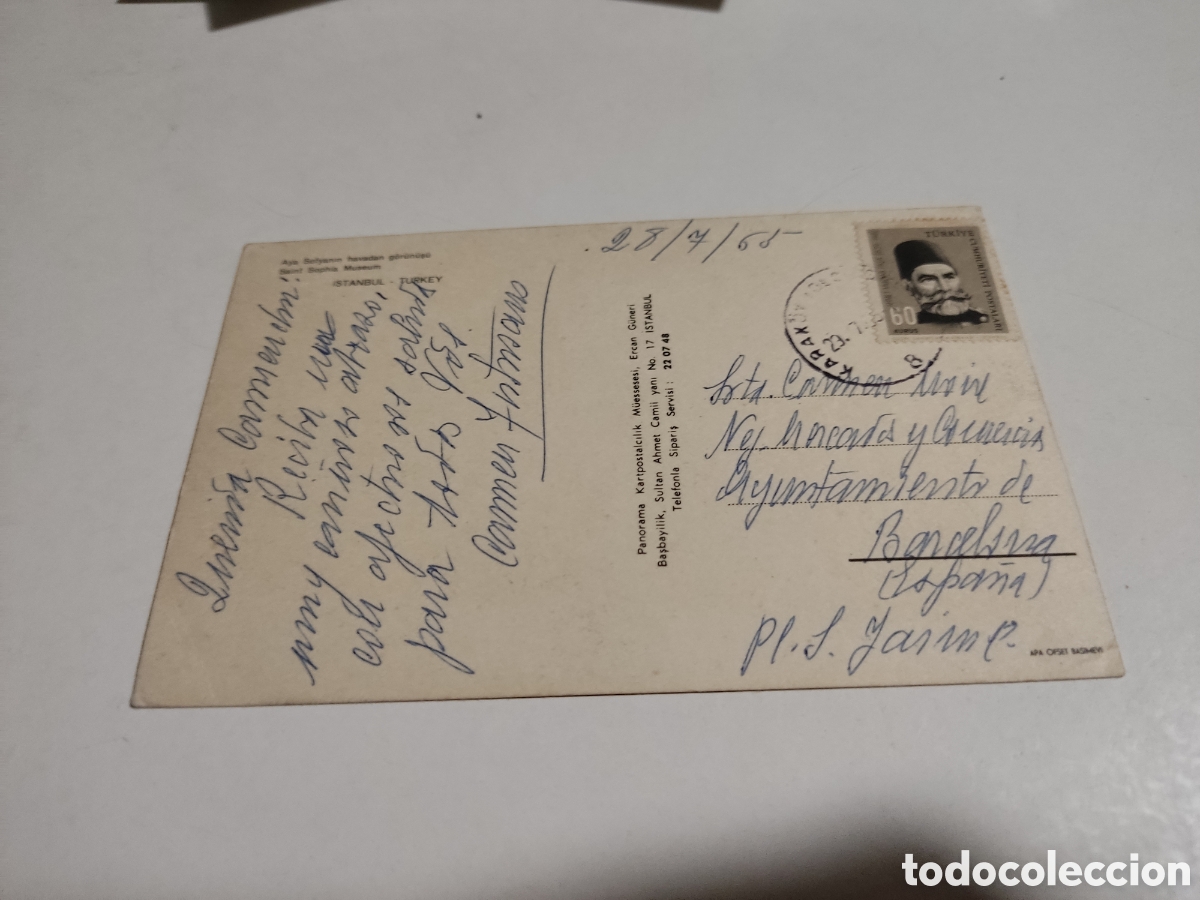 Aya Sofyanın havadan görünüşü
Saint Sophia Museum
ISTANBUL - TURKEY
28/7/65
Querida Carmenchu:
Recibe un
muy cariñoso abrazo,
con afectuosos saludos
para todos
Carmen
Panorama Kartpostalcılık Müessesesi, Ercan Güneri
Başbayilik, Sultan Ahmet Camii yanı No. 17 ISTANBUL
Telefonla Sipariş Servisi : 22 07 48
TÜRKİYE
CUMHURİYETİ POSTALARI
60
KARAKÖY
Srta. Carmen
Neg. Mercados y Comercios
Ayuntamiento de
Barcelona
(España)
Pl. S. Jaime
APA OFSET BASIMEVİ
todocoleccion